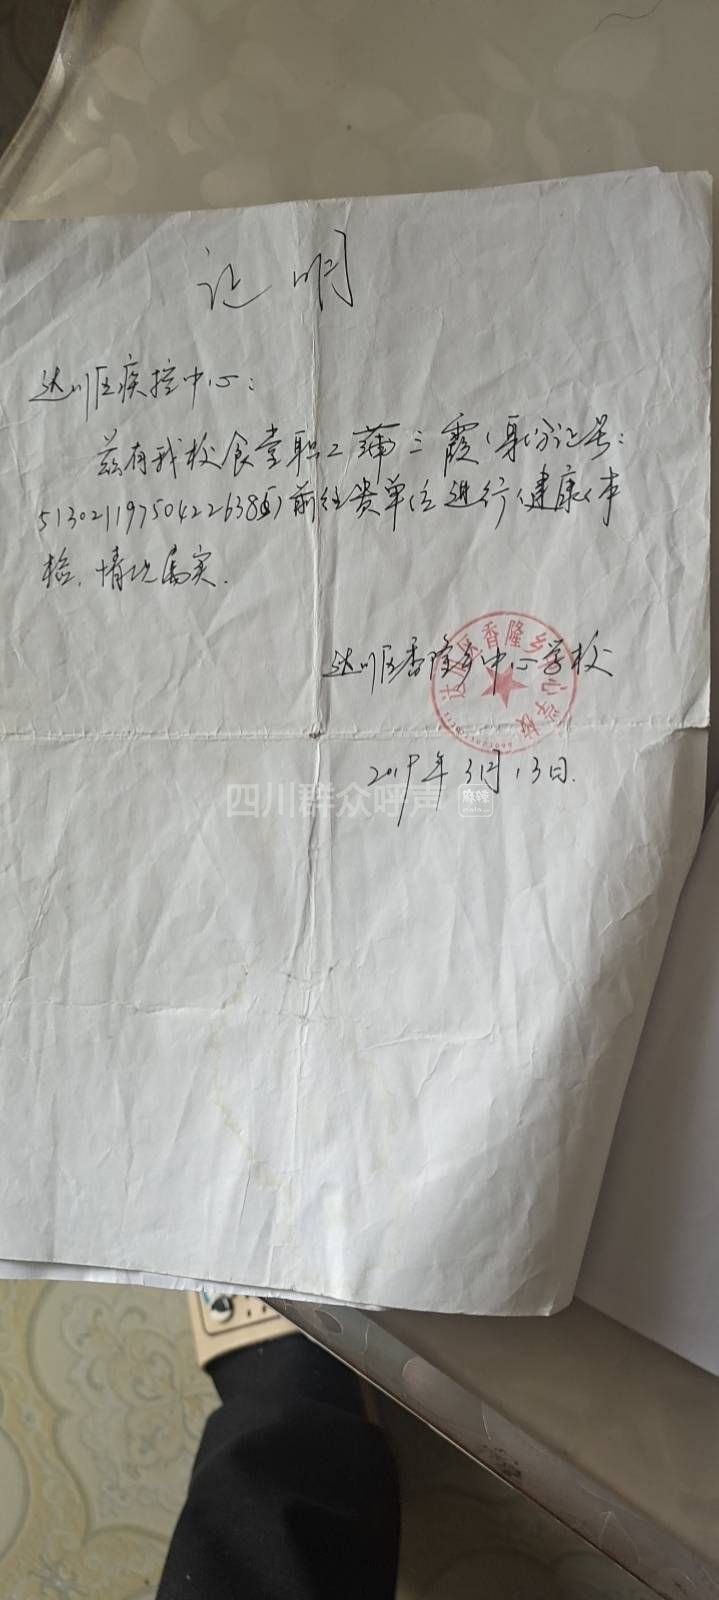 证明
达川区疾控中心：
兹有我校食堂职工蒲三霞（身份证号：
513021197504226385）前往贵单位进行健康体
检，情况属实．
达川区香隆乡中心学校
2019年3月13日．
四川群众呼声 麻辣